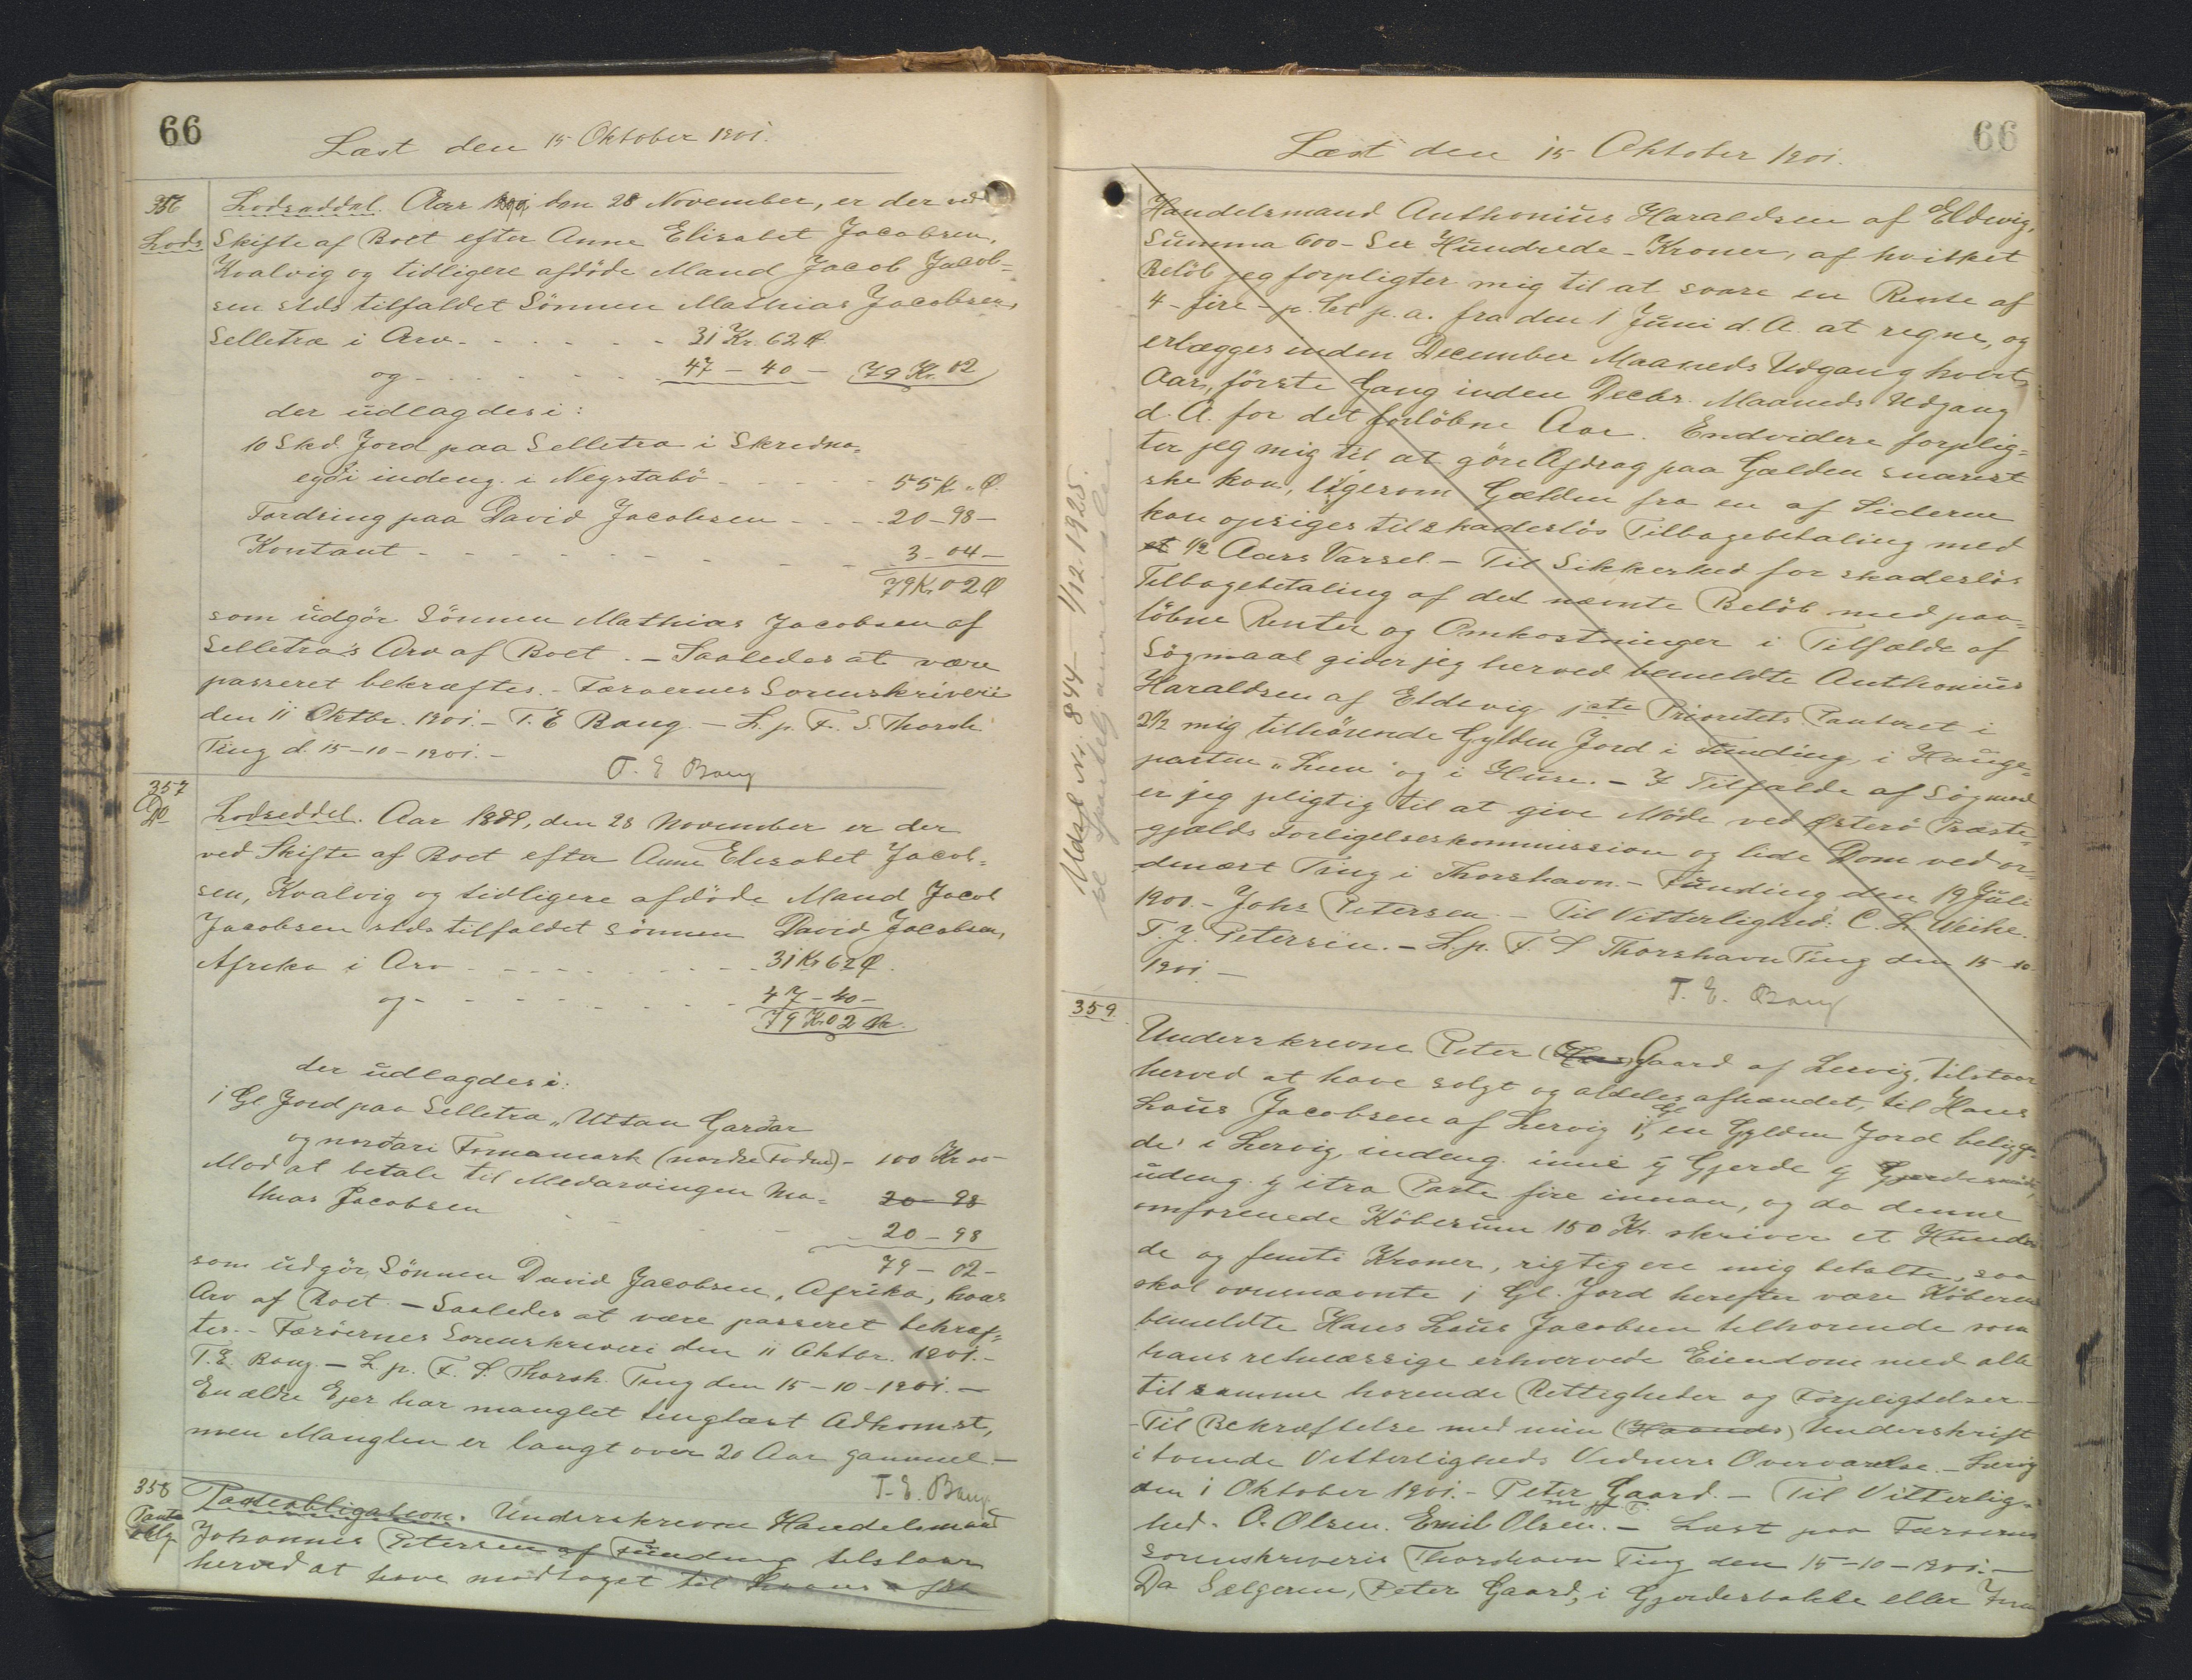 66
Læst den 15 Oktober 1901.
356
Lods
Lodseddel. Aar den 28 November, er der ved
Skifte af Boet efter Anne Elisabet Jacobsen,
Kvalvig og tidligere afdöde Mand Jacob Jacob-
sen stds tilfaldet Sönnen Mathias Jacobsen,
Selletræ i Arv - - - - - - 31 Kr. 62 Ø
og - - - - - - 47 - 40 - 79 Kr. 02
der udlagdes i:
10 Skd. Jord paa Selletra i Skredna-
eydi indeng. i Negstabö - - - - - 55 Kr. " Ø.
Fordring paa David Jacobsen - - - - 20 - 98 -
Kontant - - - - - - - - 3 - 04 -
79 Kr 02 Ø
som udgör Sönnen Mathias Jacobsen af
Selletra's Arv af Boet. - Saaledes at være
passeret bekræftes. - Færøernes Sorenskriveri
den 11 Oktbr. 1901. - T. E Bang. - L. p. F. S. Thorsh
Ting d. 15-10-1901. -
T. E Bang
357
Do
Lodseddel. Aar 1889, den 28 November er der
ved Skifte af Boet efter Anne Elisabet Jacob-
sen, Kvalvig og tidligere afdöde Mand Jacob
Jacobsen stds tilfaldet Sönnen David Jacobsen,
Afrika i Arv - - - - - - - - 31 Kr 62 Ø.
og - - - - - - - 47 - 40 -
79 Kr 02 Ør.
der udlagdes i:
1 Gl Jord paa Selletra "Uttan Gardar
og nordari (nordre - 100 Kr 00
Mod at betale til Medarvingen Ma- 20 - 98
thias Jacobsen - - - 20 - 98
79 - 02 -
som udgör Sönnen David Jacobsen, Afrika, hans
Arv af Boet. - Saaledes at være passeret bekræf-
tes. - Færöernes Sorenskriveri den 11 Oktbr. 1901. -
T. E. Bang. - L. p. F. S. Thorsh. Ting den 15-10-1901. -
En ældre Ejer har manglet tinglæst Adkomst,
men Manglen er langt over 20 Aar gammel. -
T. E. Bang
358
Pante
oblg
Panteobligation. Underskrevne Handelsmand
Johannes Petersen af Funding tilstaar
herved at have modtaget til Laans af
66
Læst den 15 Oktober 1901.
Udsl. Nr. 844 - 1/12 1925.
Handelsmand Anthonius Haraldsen af Eldevig,
Summa 600 - Sex Hundrede - Kroner, af hvilket
Belöb jeg forpligter mig til at svare en Rente af
4 - fire - p. Ct p. a. fra den 1 Juni d. A. at regne, og
erlægges inden December Maaneds Udgang hvert
Aar, förste Gang inden Decbr. Maaneds Udgang
d. A. for det forlöbne Aar. Endvidere forplig-
ter jeg mig til at göre Afdrag paa Gælden snarest
ske kan, ligesom Gælden fra en af Siderne
kan opsiges til skadeslös Tilbagebetaling med
et 1/2 Aars Varsel. - Til Sikkerhed for skadeslös
Tilbagebetaling af det nævnte Belöb med paa-
löbne Renter og Omkostninger i Tilfælde af
Sögmaal giver jeg herved bemeldte Anthonius
Haraldsen af Eldevig 1ste Prioritets Panteret i
2 1/2 mig tilhörende Gylden Jord i Funding, i Hauge-
parten og i Huse. - I Tilfælde af Sögmaal
er jeg pligtig til at give Möde ved Østerö Præste-
gjælds Forligelseskommission og lide Dom ved or-
dinært Ting i Thorshavn. - Funding den 19 Juli
1900. - Johs Petersen. - Til Vitterlighed: C. L. Weihe.
T. J. Petersen. - L. p. F. S Thorshavn Ting den 15-10-
1901 -
T. E. Bang
359.
Underskrevne Peter Gaard af Lervig, tilstaar
herved at have solgt og aldeles afhændet, til Hans
Laus Jacobsen af Lervig 1 Gl, en Gylden Jord beliggen-
de i Lervig, indeng. inni ÿ Gjerde
udeng. ÿ itra Parte fire innan, og da denne
omforenede Köbesum 150 Kr. skriver et Hundre-
de og femti Kroner, rigtig ere mig betalte, saa
skal ovennævnte 1 Gl. Jord herefter være Köberen
bemeldte Hans Laus Jacobsen tilhorende som
hans retmæssige erhvervede Eiendom med alle
til samme horende Rettigheder og Forpligtelser -
- Til Bekræftelse med min (Haands) Underskrift
i tvende Vitterligheds Vidners Overværelse. - Lervig
den 1 Oktober 1901. - Peter Gaard. - Til Vitterlig-
m. f. P.
hed. O. Olsen. Emil Olsen. - Læst paa Færöernes
Sorenskriveris Thorshavn Ting den 15-10-1901. -
Da Sælgeren, Peter Gaard, i Gjerdesbakke eller